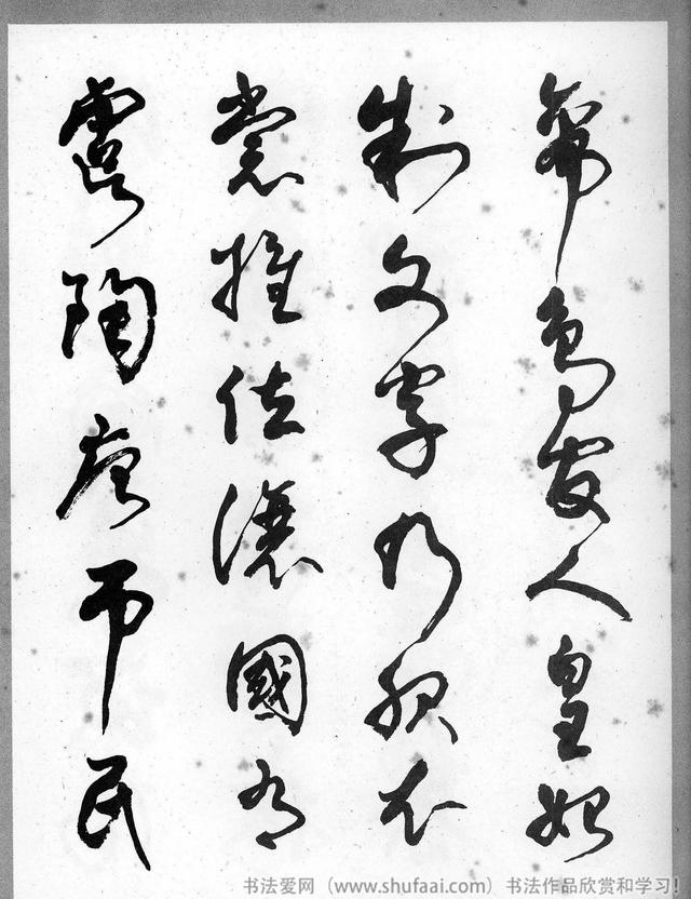 帝鳥官人皇始
制文字乃服衣
裳推位讓國有
虞陶唐吊民
书法爱网（www.shufaai.com）书法作品欣赏和学习！